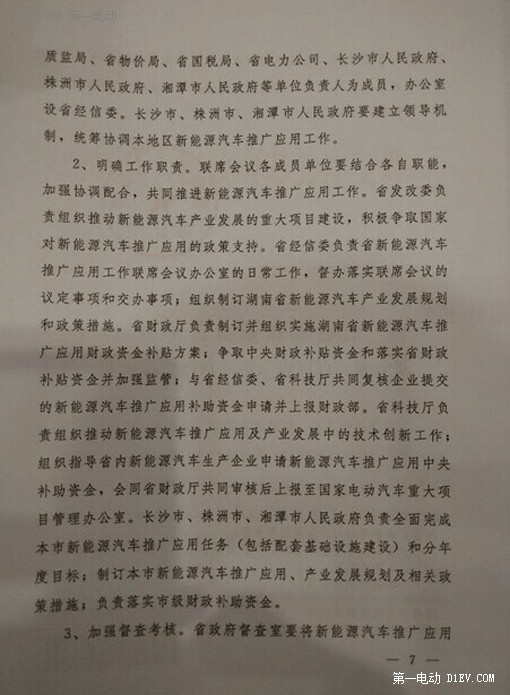 第一电动
质监局、省物价局、省国税局、省电力公司、长沙市人民政府、
株洲市人民政府、湘潭市人民政府等单位负责人为成员，办公室
设省经信委。长沙市、株洲市、湘潭市人民政府要建立领导机
制，统筹协调本地区新能源汽车推广应用工作。
2、明确工作职责。联席会议各成员单位要结合各自职能，
加强协调配合，共同推进新能源汽车推广应用工作。省发改委负
责组织推动新能源汽车产业发展的重大项目建设，积极争取国家
对新能源汽车推广应用的政策支持。省经信委负责省新能源汽车
推广应用工作联席会议办公室的日常工作，督办落实联席会议的
议定事项和交办事项；组织制订湖南省新能源汽车产业发展规划
和政策措施。省财政厅负责制订并组织实施湖南省新能源汽车推
广应用财政资金补贴方案；争取中央财政补贴资金和落实省财政
补贴资金并加强监管；与省经信委、省科技厅共同复核企业提交
的新能源汽车推广应用补助资金申请并上报财政部。省科技厅负
责组织推动新能源汽车推广应用及产业发展中的技术创新工作；
组织指导省内新能源汽车生产企业申请新能源汽车推广应用中央
补助资金，会同省财政厅共同审核后上报至国家电动汽车重大项
目管理办公室。长沙市、株洲市、湘潭市人民政府负责全面完成
本市新能源汽车推广应用任务（包括配套基础设施建设）和分年
度目标；制订本市新能源汽车推广应用、产业发展规划及相关政
策措施；负责落实市级财政补助资金。
3、加强督查考核。省政府督查室要将新能源汽车推广应用
— 7 —
第一电动 D1EV.COM